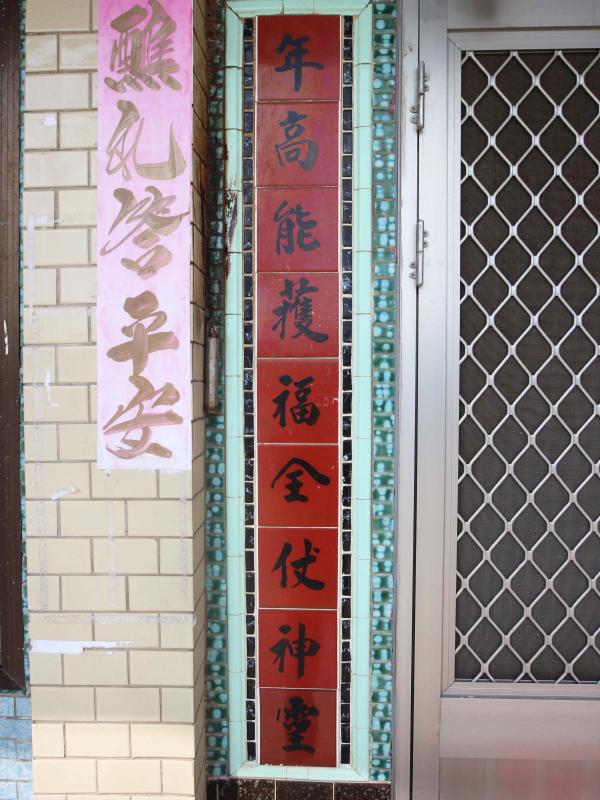 年高能獲福全伏神靈
醮礼答平安